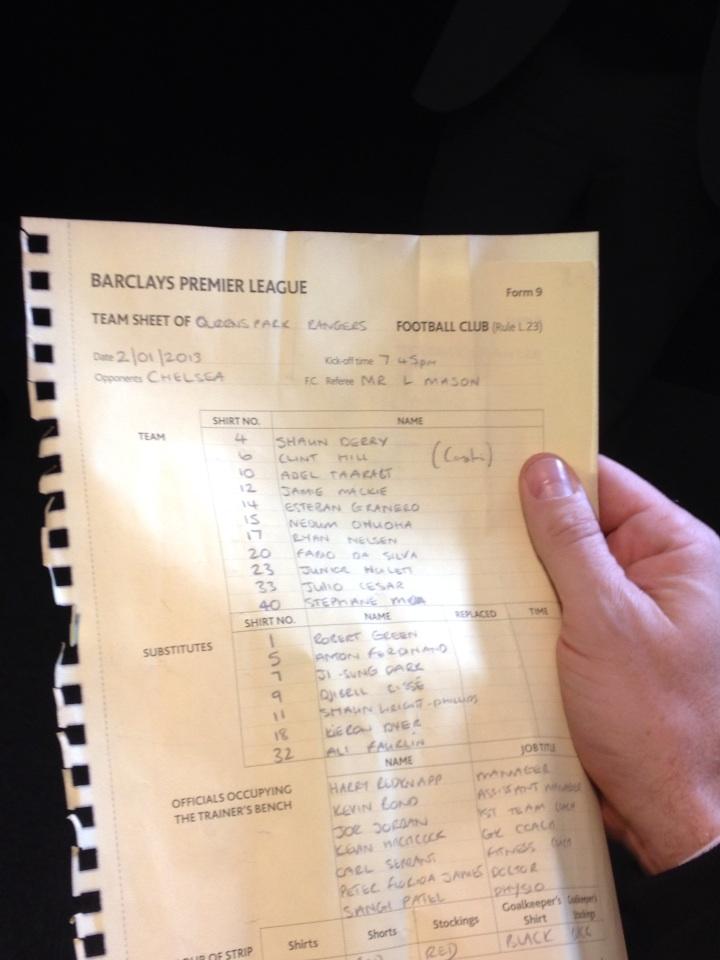 BARCLAYS PREMIER LEAGUE Form 9
TEAM SHEET OF QUEENS PARK RANGERS FOOTBALL CLUB (Rule L.23)
Date 2/01/2013 Kick-off time 7 45pm
Opponents CHELSEA F.C. Referee MR L MASON
TEAM SHIRT NO. NAME
4 SHAUN DERRY
6 CLINT HILL
10 ADEL TAARABT
12 JAMIE MACKIE
14 ESTEBAN GRANERO
15 NEDUM ONUOHA
17 RYAN NELSEN
20 FABIO DA SILVA
23 JUNIOR HOILETT
33 JULIO CESAR
40 STEPHANE MBIA
SUBSTITUTES SHIRT NO. NAME REPLACED TIME
1 ROBERT GREEN
5 ANTON FERDINAND
7 JI-SUNG PARK
9 DJIBRIL CISSÉ
11 SHAUN WRIGHT-PHILLIPS
18 KIERON DYER
32 ALI FAURLIN
OFFICIALS OCCUPYING THE TRAINER'S BENCH NAME JOB TITL
HARRY REDKNAPP MANAGER
KEVIN BOND ASSISTANT MANAGER
JOE JORDAN 1ST TEAM COACH
KEVIN HITCHCOCK GK COACH
CARL SERRANT FITNESS COACH
PETER FLORIDA JAMES DOCTOR
SANGI PATEL PHYSIO
OUR OF STRIP Shirts Shorts Stockings Goalkeeper's Shirt Goalkeeper's Stockings
RED BLACK